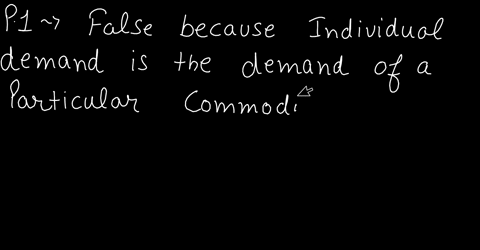 P.1 ~> False because Individual
demand is the demand of a
Particular Commodi